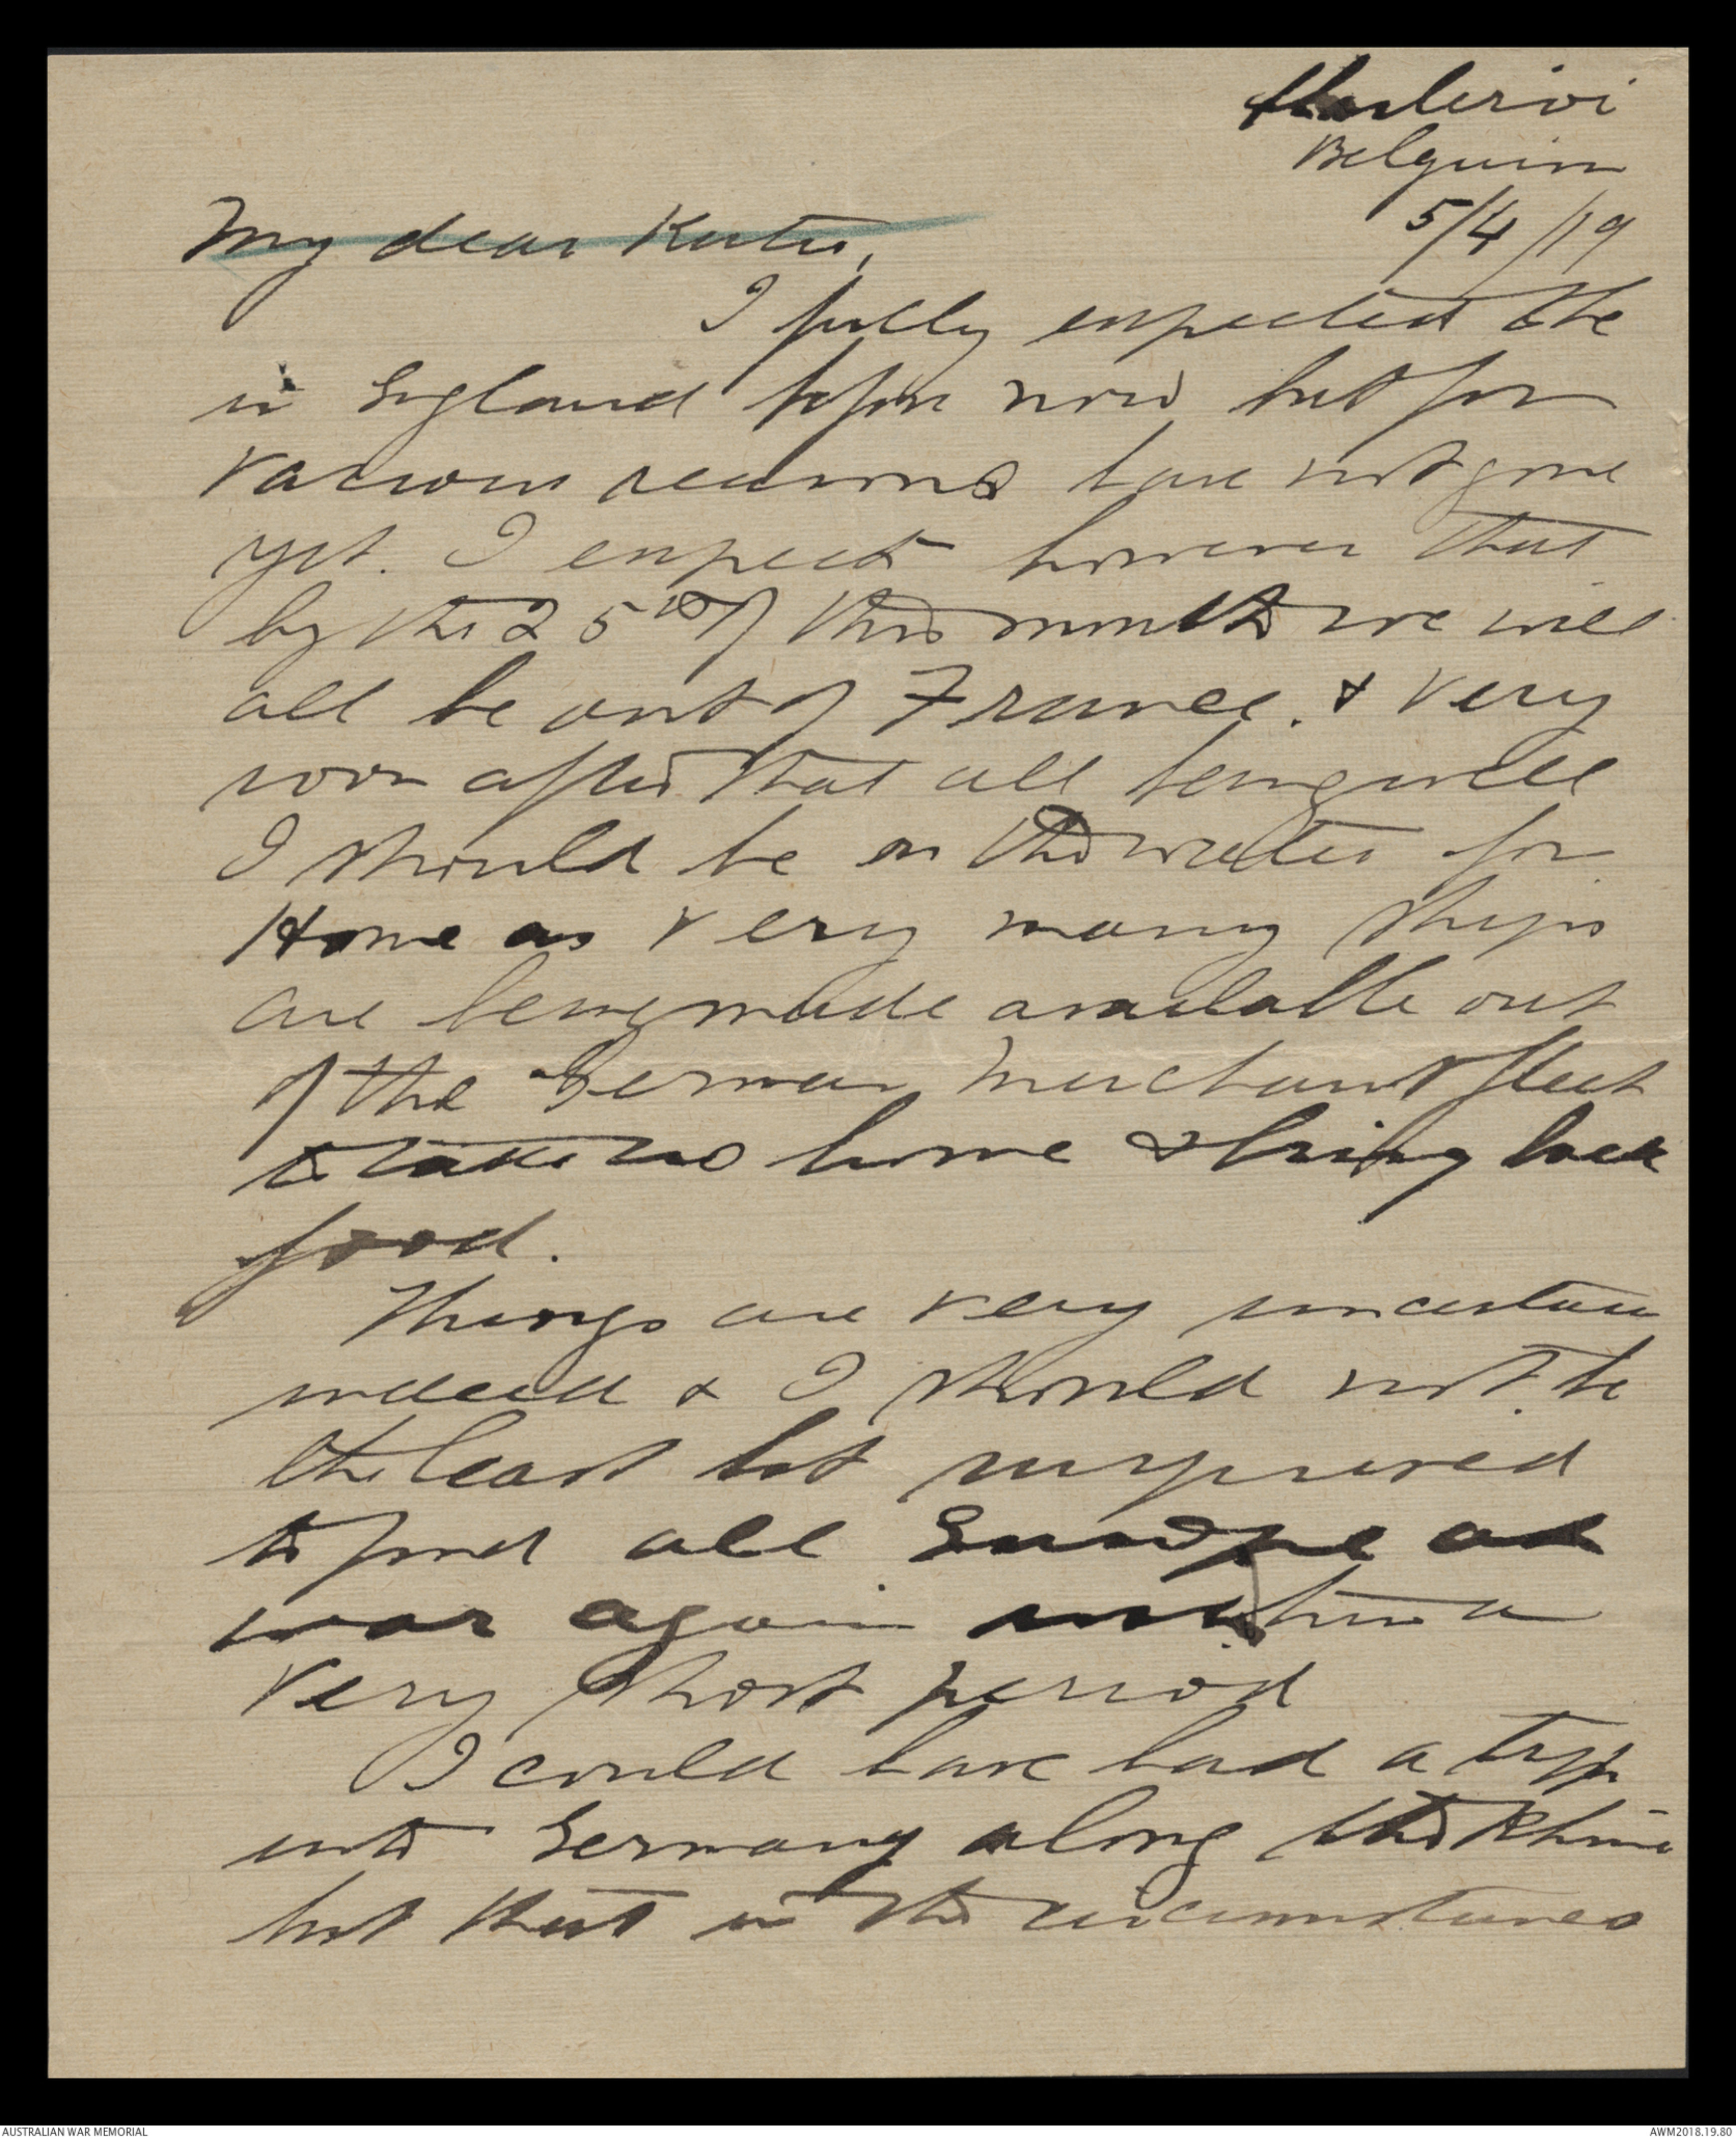 Charleroi
Belguim
5/4/19
My dear Kertie,
I fully expected to be
in England before now but for
various reasons have not gone
yet. I expect however that
by the 25th of this month we will
all be out of France. & very
soon after that all being well
I should be on the water for
Home as very many ships
are being made available out
of the German Merchant fleet
to take us home & bring back
food.
Things are very uncertain
indeed & I should not be
the least bit surprised
to find all Europe at
war again within a
very short period
I could have had a trip
into Germany along the Rhine
but that in the circumstances
AUSTRALIAN WAR MEMORIAL
AWM2018.19.80